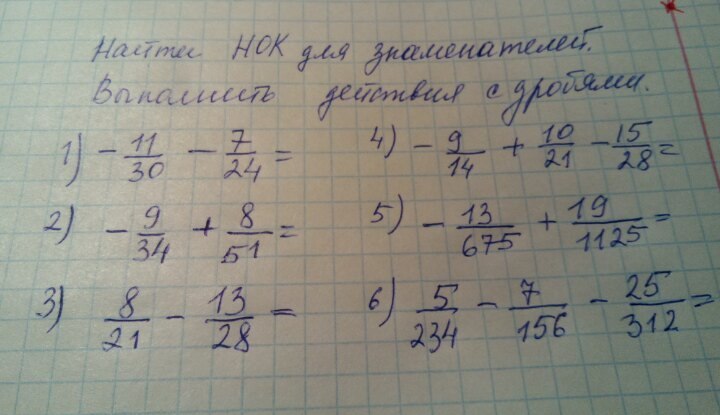 Найти НОК для знаменателей.
Выполнить действия с дробями.
1) - 11/30 - 7/24 =
2) - 9/34 + 8/51 =
3) 8/21 - 13/28 =
4) - 9/14 + 10/21 - 15/28 =
5) - 13/675 + 19/1125 =
6) 5/234 - 7/156 - 25/312 =